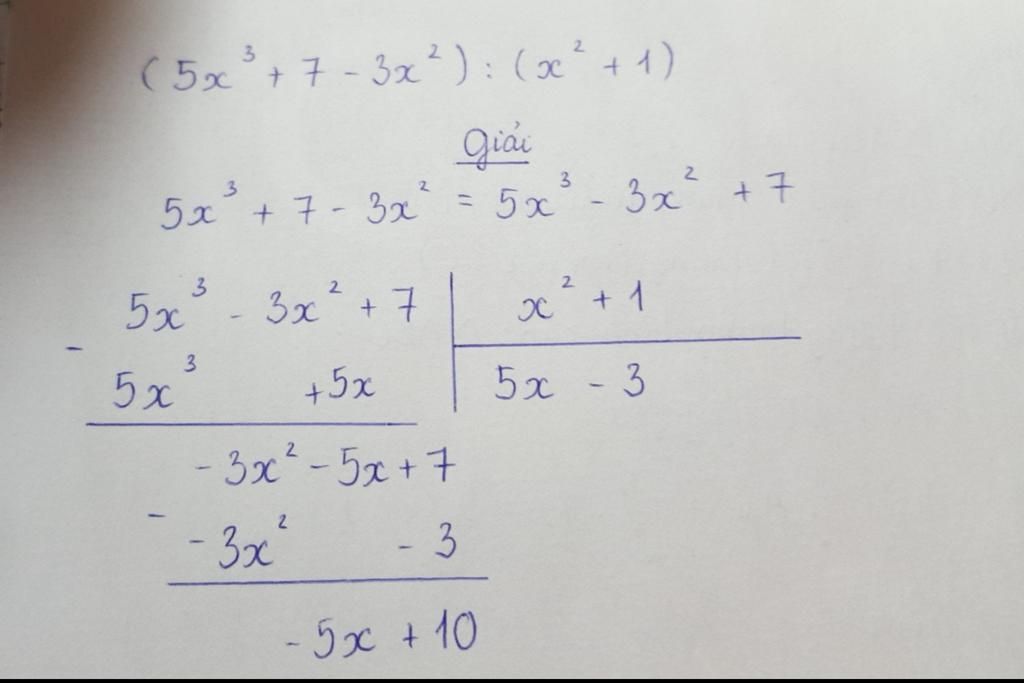 (5x³ + 7 - 3x²) : (x² + 1)
Giải
5x³ + 7 - 3x² = 5x³ - 3x² + 7
5x³ - 3x² + 7 | x² + 1
-
5x³ + 5x | 5x - 3
- 3x² - 5x + 7
-
- 3x² - 3
- 5x + 10